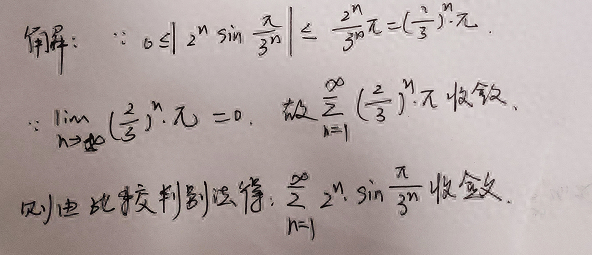 解: ∵ 0≤| 2ⁿ sin π/3ⁿ | ≤ 2ⁿ/3ⁿ π = (2/3)ⁿ·π.
∵ lim n→∞ (2/3)ⁿ·π = 0. 故 ∑ n=1 ∞ (2/3)ⁿ·π 收敛.
则由比较判别法得: ∑ n=1 ∞ 2ⁿ· sin π/3ⁿ 收敛.